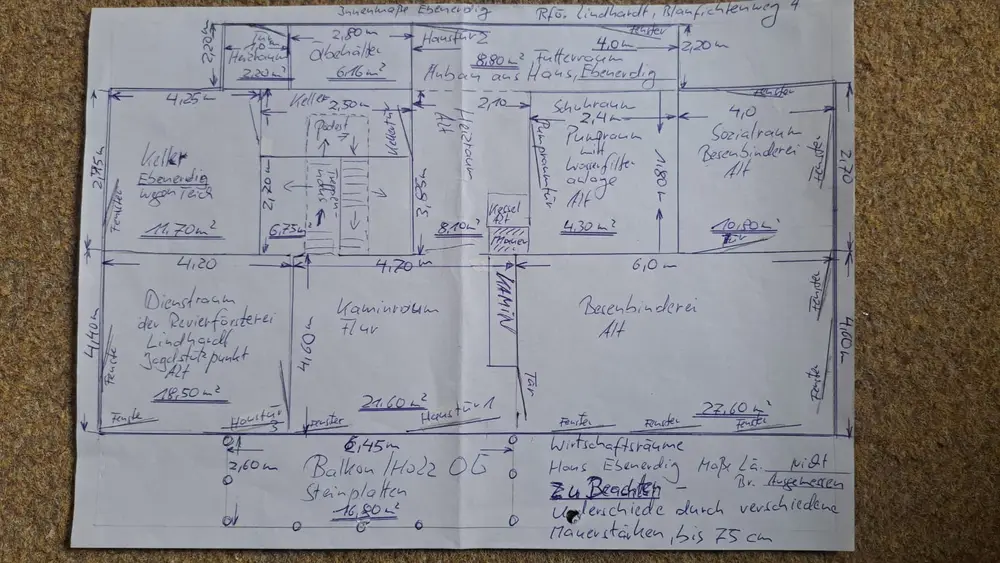 Innenmaße Ebenerdig
Rfö. Lindhardt, Blaufichtenweg 4
2,20m
1,0m
Heizraum
2,20m²
2,80 m
Ölbehälter
6,16 m²
Haustür 2
8,80 m²
4,0 m
Futterraum
Anbau aus Haus, Ebenerdig
Fenster
2,20m
4,25m
Keller
2,50m
Podest
Kellertür
Heizraum
Alt
2,10
Schuhraum
2,4m
Pumpraum
mit
Wasserfilter
anlage
Alt
4,30 m²
Pumpraumtür
1,80m
Fenster
4,0
Sozialraum
Besenbinderei
Alt
10,80m²
Tür
Fenster
2,70
2,75m
Keller
Ebenerdig
wegen Teich
11,70 m²
Fenster
2,70m
6,75m²
Treppen-
3,85m
8,10 m²
Kessel
Alt
Mauer
4,20
4,70m
6,0 m
4,40m
Dienstraum
der Revierförsterei
Lindhardt
Jagdstützpunkt
Alt
18,50 m²
Fenster
Fenster
Haustür
3
4,60m
Kaminraum
Flur
21,60 m²
Fenster
Haustür 1
KAMIN
Tür
Besenbinderei
Alt
27,60 m²
Fenster
Fenster
Fenster
Fenster
Fenster
4,60m
6,45m
2,60 m
Balkon/Holz OG
Steinplatten
16,80m²
Wirtschaftsräume
Haus Ebenerdig Maße Lä. nicht
Br. Ausgemessen
Zu Beachten -
Unterschiede durch verschiedene
Mauerstärken, bis 75 cm